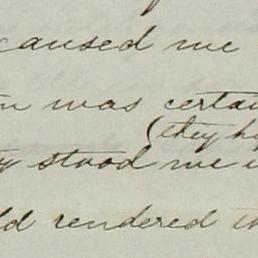 caused me
was certai
(they h
stood me i
ld rendered th